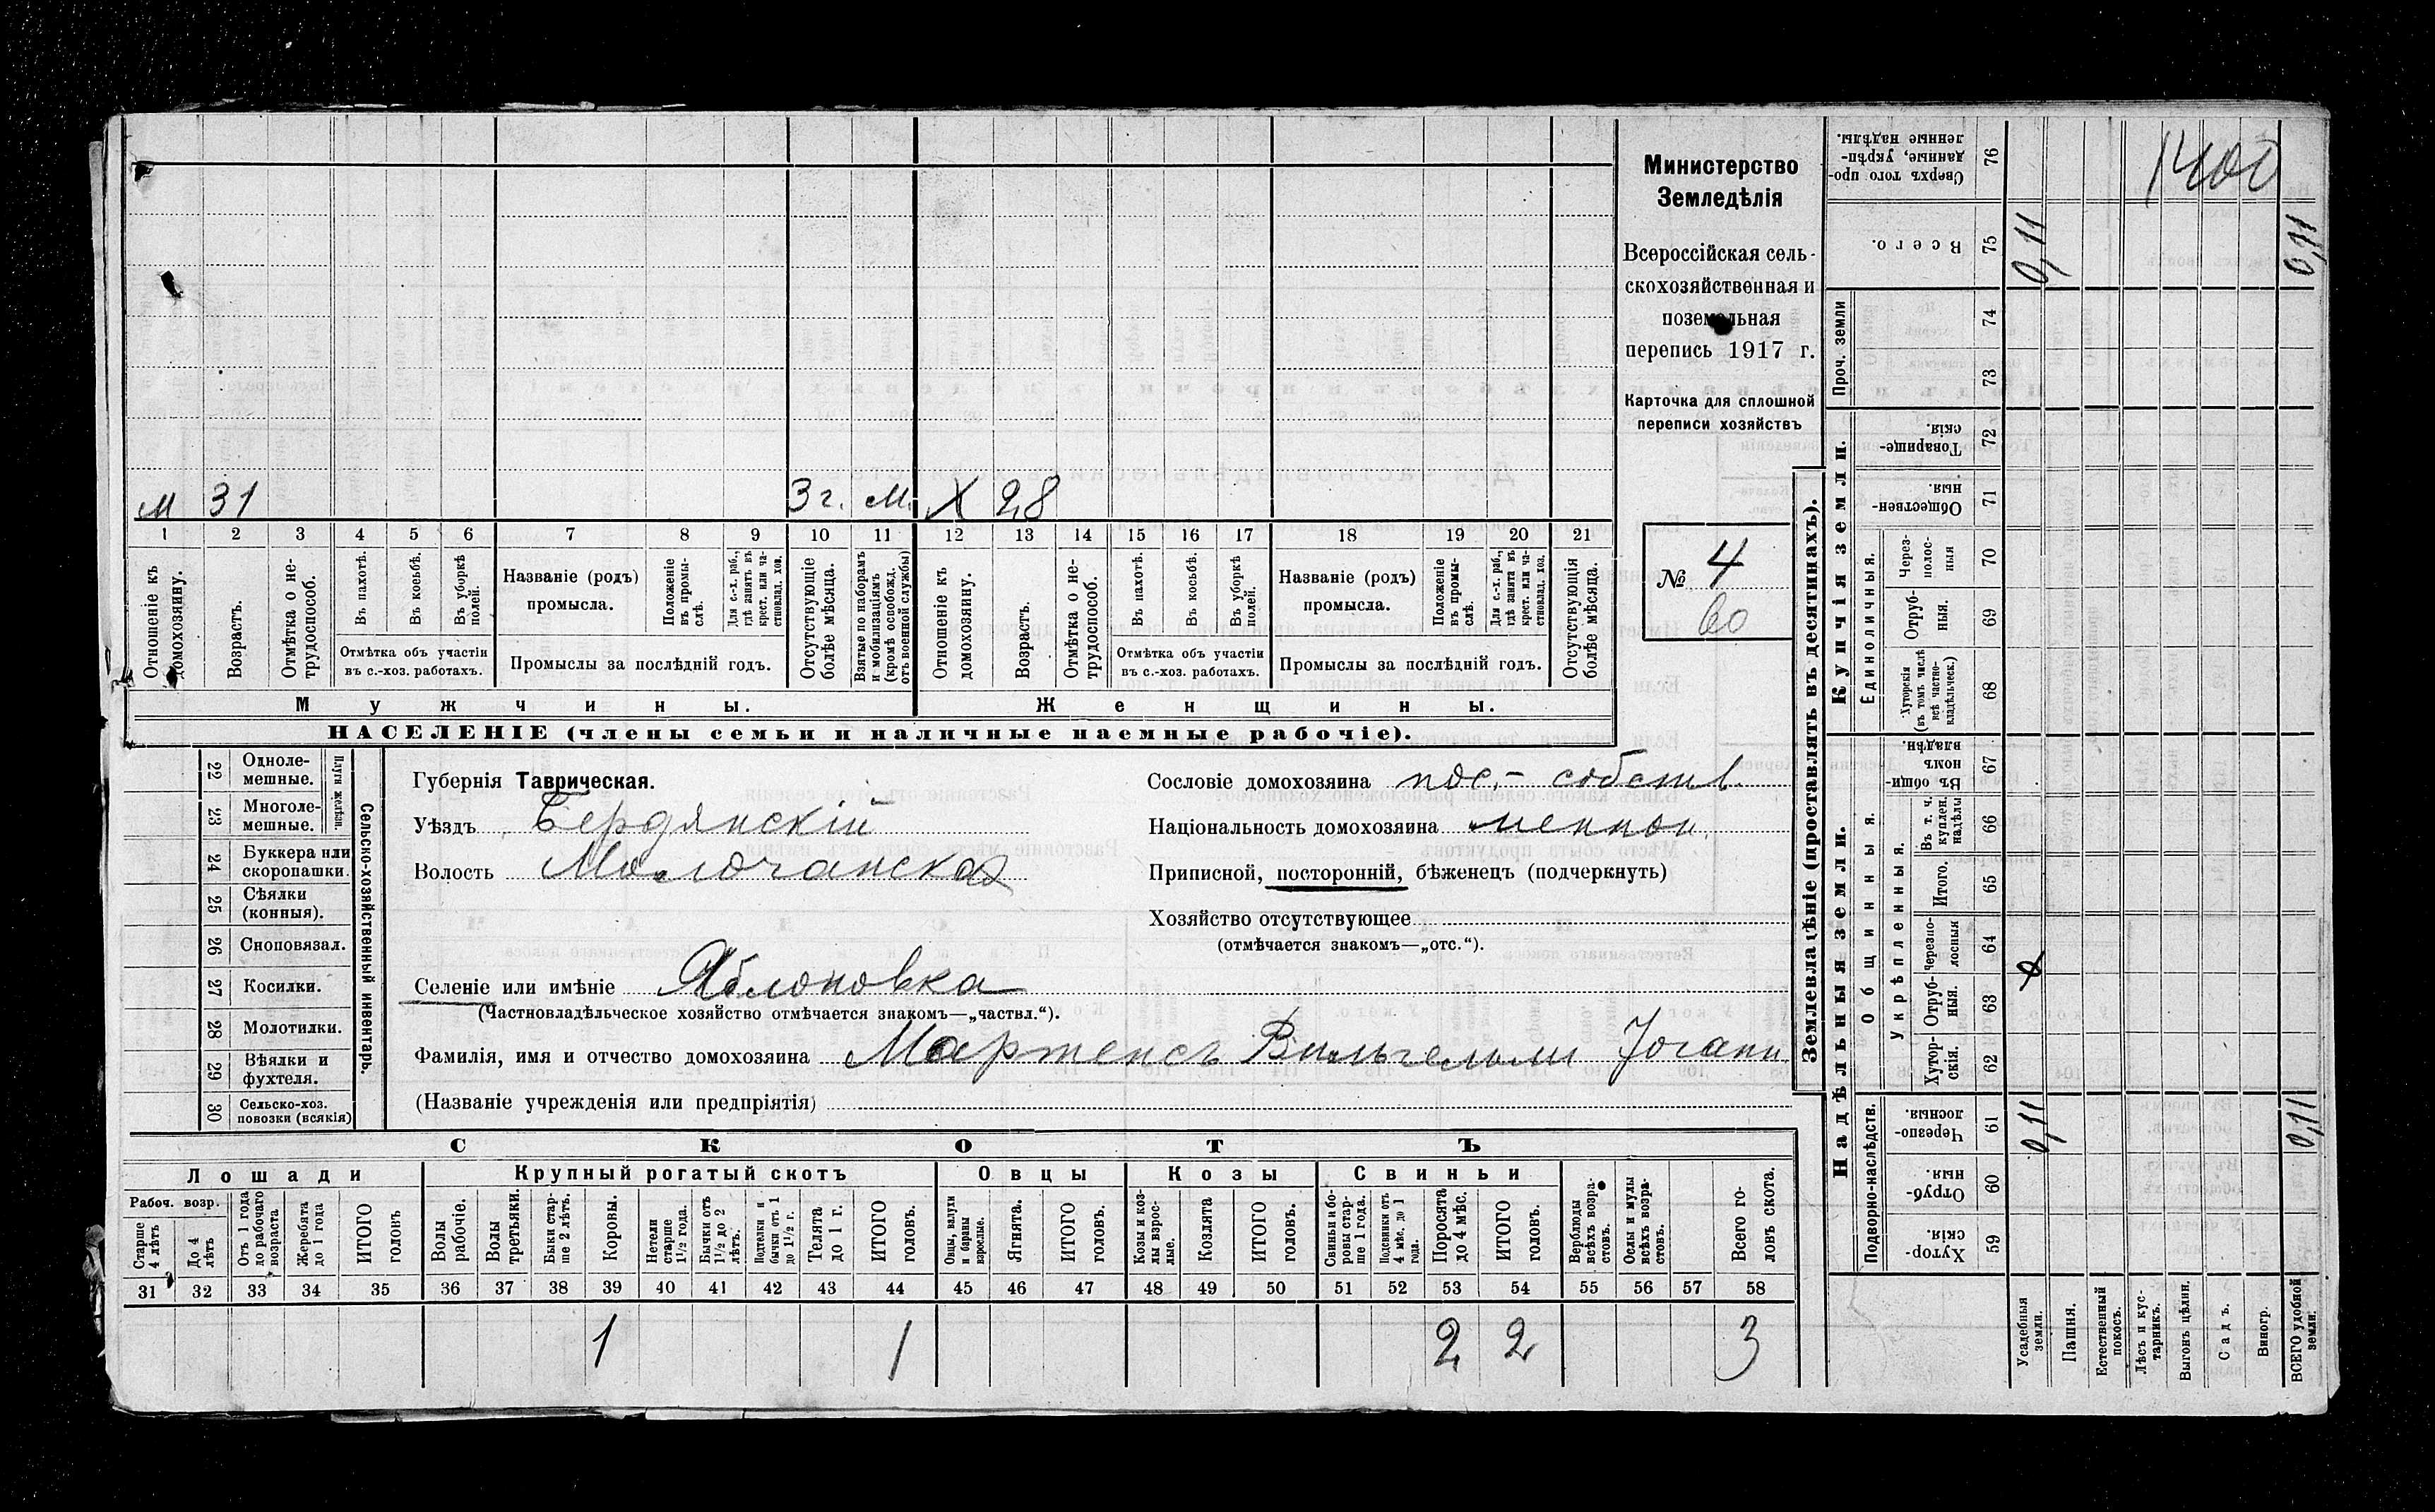 Министерство
Земледѣлія
Всероссійская сель-
скохозяйственная и
поземельная
перепись 1917 г.
Карточка для сплошной
переписи хозяйствъ
№ 4
60
м 31 3 г. м. Х 28
1 2 3 4 5 6 7 8 9 10 11 12 13 14 15 16 17 18 19 20 21
Отношеніе къ домохозяину.
Возрастъ.
Отмѣтка о не-трудоспособ.
Въ пахотѣ.
Въ косьбѣ.
Въ уборкѣ полей.
Отмѣтка объ участіи
въ с.-хоз. работахъ.
Названіе (родъ)
промысла.
Положеніе въ промы-слѣ.
Для с.-х. раб., гдѣ занятъ въ крест. или ча-стновлад. хоз.
Промыслы за послѣдній годъ.
Отсутствующіе болѣе мѣсяца.
Взятые по наборамъ и мобилизаціямъ (кромѣ освобожд. отъ военной службы)
Отношеніе къ домохозяину.
Возрастъ.
Отмѣтка о не-трудоспособ.
Въ пахотѣ.
Въ косьбѣ.
Въ уборкѣ полей.
Отмѣтка объ участіи
въ с.-хоз. работахъ.
Названіе (родъ)
промысла.
Положеніе въ промы-слѣ.
Для с.-х. раб., гдѣ занята въ крест. или ча-стновлад. хоз.
Промыслы за послѣдній годъ.
Отсутствующія болѣе мѣсяца.
Мужчины. Женщины.
НАСЕЛЕНІЕ (члены семьи и наличные наемные рабочіе).
22 Одноле-мешные.
23 Многоле-мешные.
Плуги желѣзн.
24 Буккера или скоропашки.
25 Сѣялки (конныя).
26 Сноповязал.
27 Косилки.
28 Молотилки.
29 Вѣялки и фухтеля.
30 Сельско-хоз. повозки (всякія)
Сельско-хозяйственный инвентарь.
Губернія Таврическая.
Уѣздъ Бердянскій
Волость Молочанская
Селеніе или имѣніе Яблоновка
(Частновладѣльческое хозяйство отмѣчается знакомъ—„частвл.“).
Фамилія, имя и отчество домохозяина Мартенсъ Вильгельм Іоганн
(Названіе учрежденія или предпріятія)
Сословіе домохозяина пос.- собств.
Національность домохозяина меннон.
Приписной, посторонній, бѣженецъ (подчеркнуть)
Хозяйство отсутствующее
(отмѣчается знакомъ—„отс.“).
СКОТЪ
Лошади Крупный рогатый скотъ Овцы Козы Свиньи
Рабоч. возр.
Старше 4 лѣтъ
До 4 лѣтъ
Отъ 1 года до рабочаго возраста
Жеребята до 1 года
ИТОГО головъ
Волы рабочіе.
Волы третьяки.
Быки стар-ше 2 лѣтъ.
Коровы.
Нетели старше 1½ года.
Бычки отъ 1½ до 2 лѣтъ.
Подтелки и бычки отъ 1 до 1½ г.
Телята до 1 г.
ИТОГО головъ.
Овцы, валухи и бараны взрослые.
Ягнята.
ИТОГО головъ.
Козы и коз-лы взрос-лые.
Козлята
ИТОГО головъ.
Свиньи и бо-ровы стар-ше 1 года.
Подсвинки отъ 4 мѣс. до 1 года.
Поросята до 4 мѣс.
ИТОГО головъ.
Верблюды всѣхъ возра-стовъ.
Ослы и мулы всѣхъ возра-стовъ.
Всего го-ловъ скота.
31 32 33 34 35 36 37 38 39 40 41 42 43 44 45 46 47 48 49 50 51 52 53 54 55 56 57 58
1 1 2 2 3
Землевладѣніе (проставлять въ десятинахъ).
Купчія земли.
Надѣльныя земли.
76 Сверхъ того про-данные, укрѣп-ленные надѣлы. 1400
75 Всего. 0,11 0,11
Проч. земли
74
73
72 Товарище-скія.
71 Обществен-ныя.
Единоличныя.
70 Через-полос-ныя
69 Отруб-ныя.
68 Хуторскія (въ томъ числѣ всѣ частно-владѣльческ.)
Общинныя.
67 Въ общи-номъ владѣн.
Укрѣпленныя.
66 Въ т. ч. куплен. надѣлы
65 Итого.
64 Черезпо-лосныя
63 Отруб-ныя.
62 Хутор-скія.
Подворно-наслѣдств.
61 Черезпо-лосныя. 0,11 0,11
60 Отруб-ныя.
59 Хутор-скія.
Усадебныя земли.
Пашня.
Естественный покосъ.
Лѣсъ и кус-тарникъ.
Выгонъ цѣлин.
Садъ.
Виногр.
ВСЕГО удобной земли.